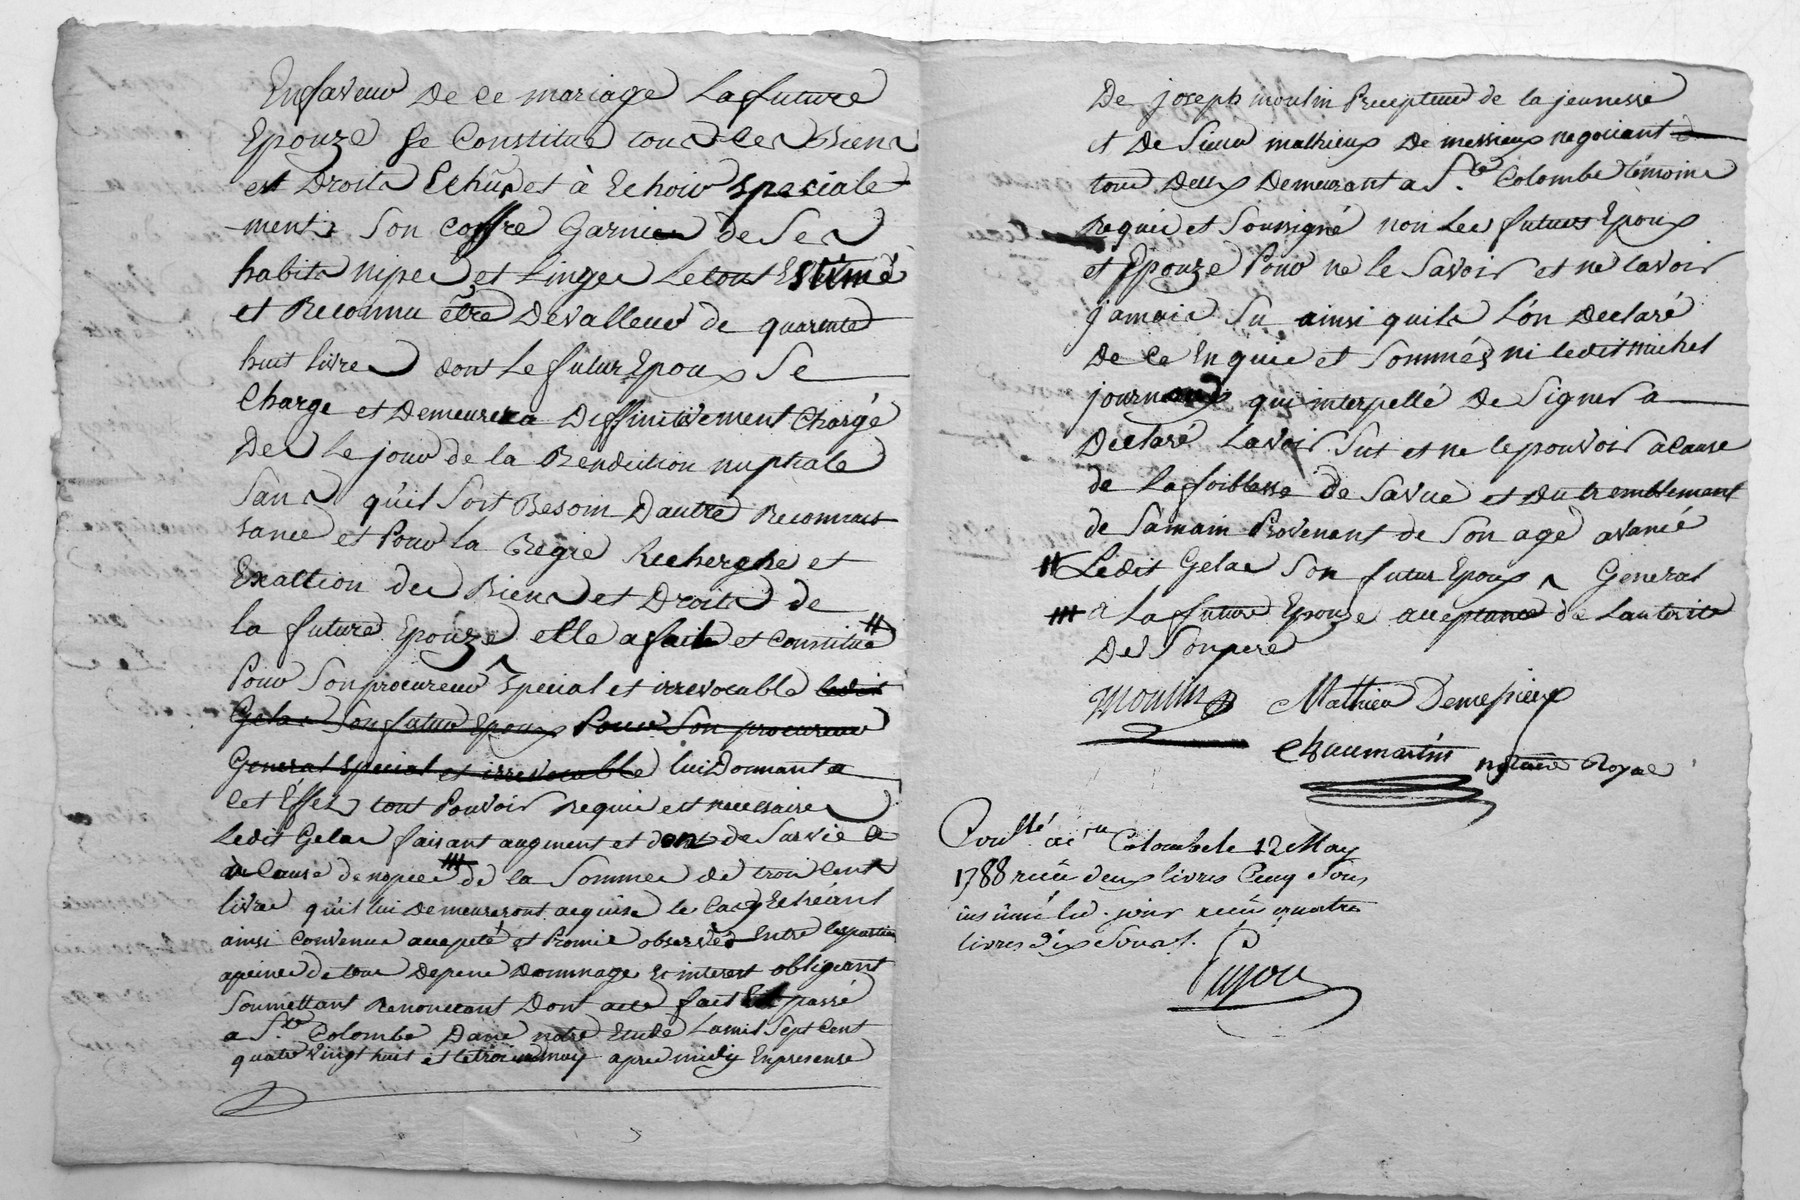 Enfaveur De Ce mariage La future
Epouze Se Constitue tous les Biens
et Droits Echûs et à Echoir speciale
-ment Son Coffre Garnie de Ses
habits nipes et Linges Letout Estimé
et Reconnu être Devalleur de quarente
huit livres dont Le futur Epoux Se
Charge et Demeurera Deffinitivement Chargé
Des Le jour de la Benediction nuptiale
Sans qu'il Soit Besoin Dautre Reconnais
sance et Pour la Regie Recherche et
Exaltion des Biens et Droits de
la future Epouze elle a fait et Constitué #
Pour Son procureur special et irrevocable ledit
Gelas Son futur Epoux Pour Son procureur
General special et irrevocable lui Donnant a
Cet Effet tout Pouvoir Requis et necessaire
Ledit Gelas faisant augment et don de Survie
a Cause de nopces de la Somme de trois Cent
livres qu'il lui Demeureront acquise le Cas Echéant
ainsi Convenus accepté et Promis observer Entre les parties
apeine de tous Depens Dommage et interest obligeant
Soumettant Renoncant Dont acte fait et passé
a Ste Colombe Dans notre Etude Lamil Sept Cent
quatre vingt huit et letrois may apres midy Enpresense
De joseph moulin Precepteur de la jeunesse
et De Sieur mathieux De messieux negociant
tous Deux Demeurant a Ste Colombe témoins
Requis et Soussigné non Les futurs Epoux
et Epouze Pour ne le Savoir et ne lavoir
jamais Su ainsi quils L'on Declaré
De Ce Enquis et Sommés ni ledit michel
journoux qui interpellé De Signer a
Declaré Lavoir Sut et ne lepouvoir a Cause
de La foiblesse de Savue et Du tremblement
de Samain Provenant de Son age avancé
# Ledit Gelas Son futur Epoux General
a La future Epouze acceptance de Lautorité
De Sonpere
Moulin Mathieu Demessieux
Chaumartin notaire Royal
Conllé ac Ste Colombe le 12 May
1788 reçu deux livres Cinq Sous
insinué led. jour reçu quatre
livres dix Sous